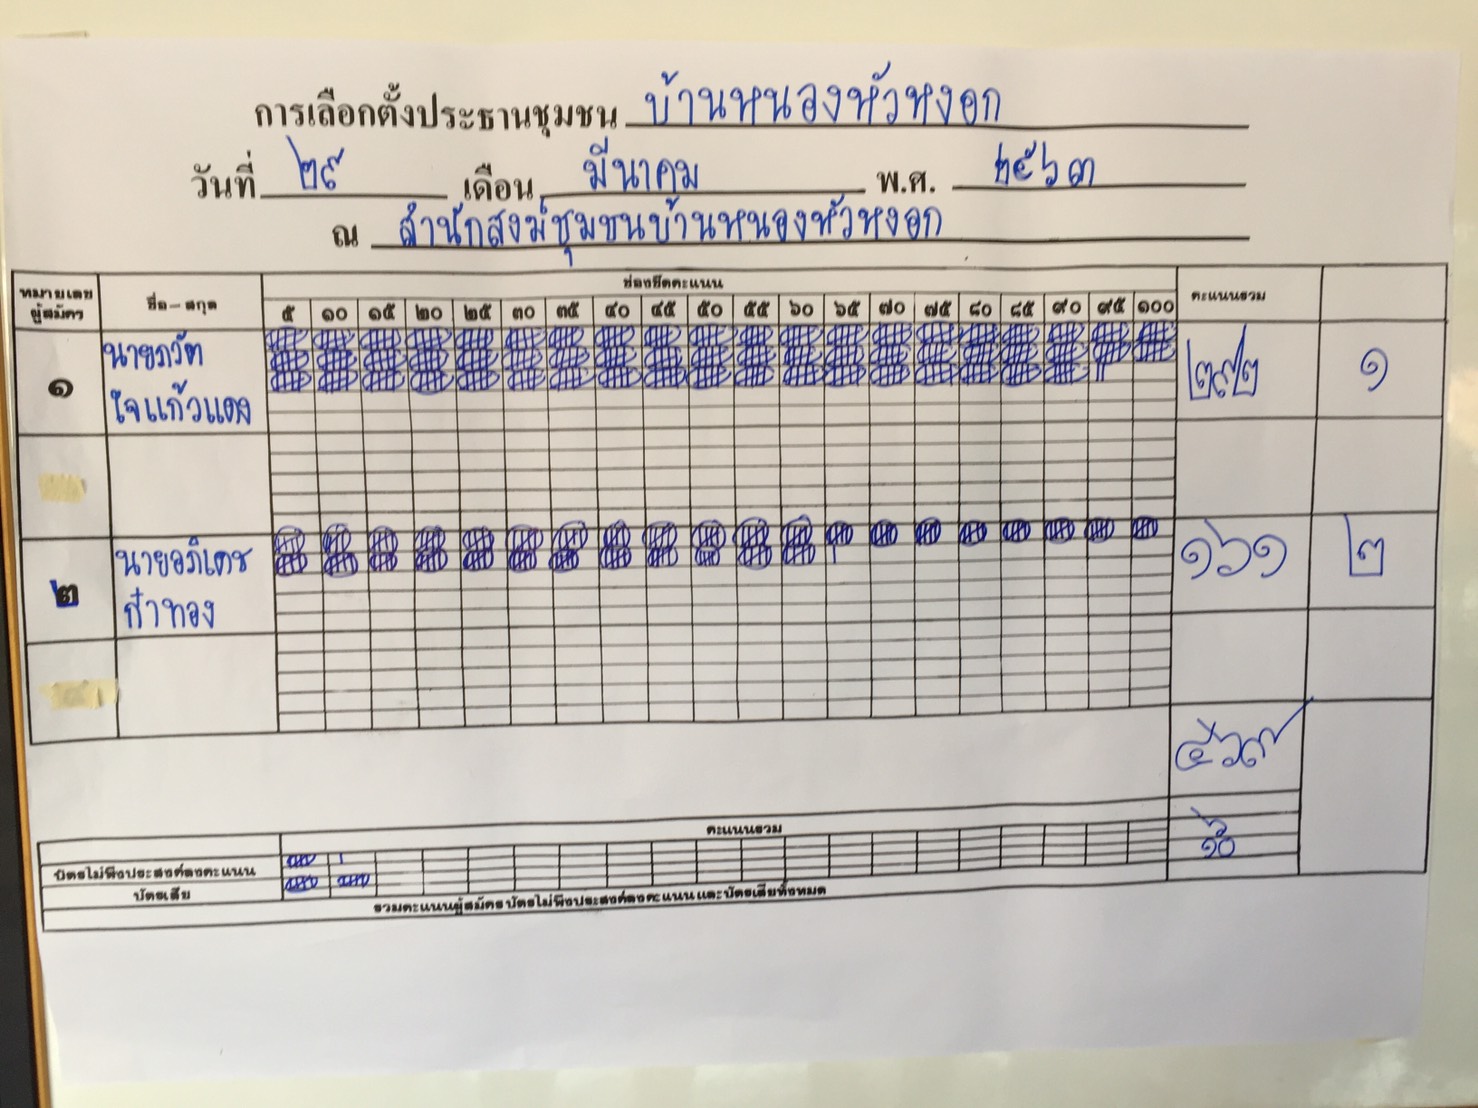 การเลือกตั้งประธานชุมชน บ้านหนองหัวหงอก
วันที่ ๒๙ เดือน มีนาคม พ.ศ. ๒๕๖๓
ณ สำนักสงฆ์ชุมชนบ้านหนองหัวหงอก
หมายเลขผู้สมัคร ชื่อ-สกุล ช่องขีดคะแนน คะแนนรวม
๕ ๑๐ ๑๕ ๒๐ ๒๕ ๓๐ ๓๕ ๔๐ ๔๕ ๕๐ ๕๕ ๖๐ ๖๕ ๗๐ ๗๕ ๘๐ ๘๕ ๙๐ ๙๕ ๑๐๐
๑ นายภวัต ๒๙๒ ๑
ใจแก้วแดง
๒ นายอภิเดช ๑๖๑ ๒
ก๋าทอง
คะแนนรวม
บัตรไม่พึงประสงค์ลงคะแนน ๖
บัตรเสีย ๑๐
รวมคะแนนผู้สมัคร บัตรไม่พึงประสงค์ลงคะแนน และบัตรเสียทั้งหมด